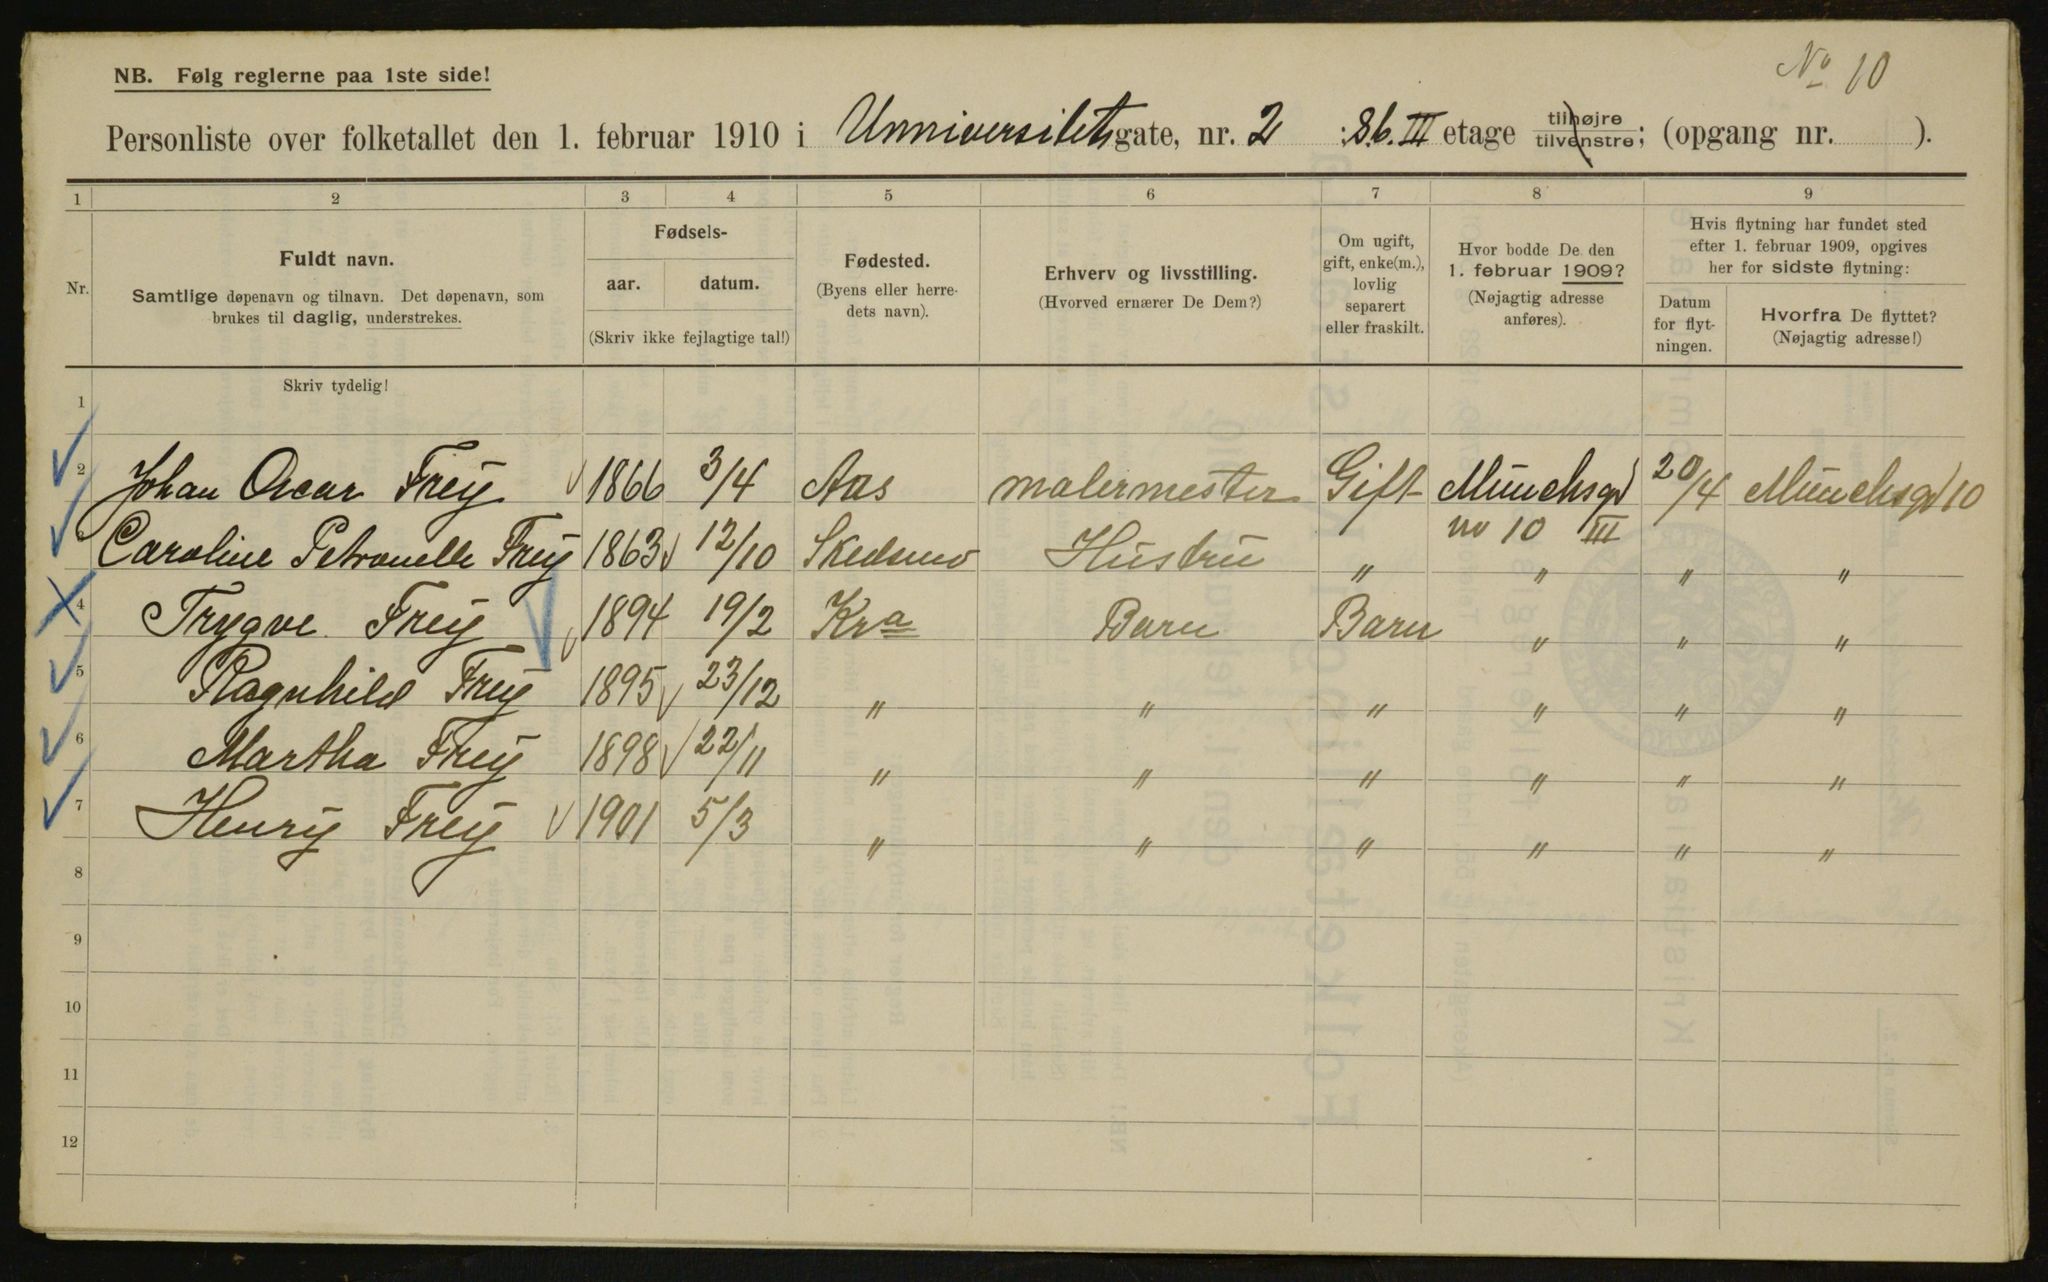 No 10
NB. Følg reglerne paa 1ste side!
Personliste over folketallet den 1. februar 1910 i Unniversitets gate, nr. 2 : S.b. III etage tilhøjre / tilvenstre; (opgang nr. ).
1 2 3 4 5 6 7 8 9
Nr.
Fuldt navn.
Samtlige døpenavn og tilnavn. Det døpenavn, som
brukes til daglig, understrekes.
Skriv tydelig!
Fødsels-
aar. datum.
(Skriv ikke fejlagtige tal!)
Fødested.
(Byens eller herre-
dets navn).
Erhverv og livsstilling.
(Hvorved ernærer De Dem?)
Om ugift,
gift, enke(m.),
lovlig
separert
eller fraskilt.
Hvor bodde De den
1. februar 1909?
(Nøjagtig adresse
anføres).
Hvis flytning har fundet sted
efter 1. februar 1909, opgives
her for sidste flytning:
Datum
for flyt-
ningen.
Hvorfra De flyttet?
(Nøjagtig adresse!)
1
2 Johan Oscar Frey 1866 3/4 Aas malermester Gift Munchsgd 20/4 Munchsgd 10
no 10 III
Caroline Petronelle Frey 1863 12/10 Skedsmo Hustru " " " "
4 Trygve Frey 1894 19/2 Kra Barn Barn " " "
5 Ragnhild Frey 1895 23/12 " " " " " "
6 Martha Frey 1898 22/11 " " " " " "
7 Henry Frey 1901 5/3 " " " " " "
8
9
10
11
12